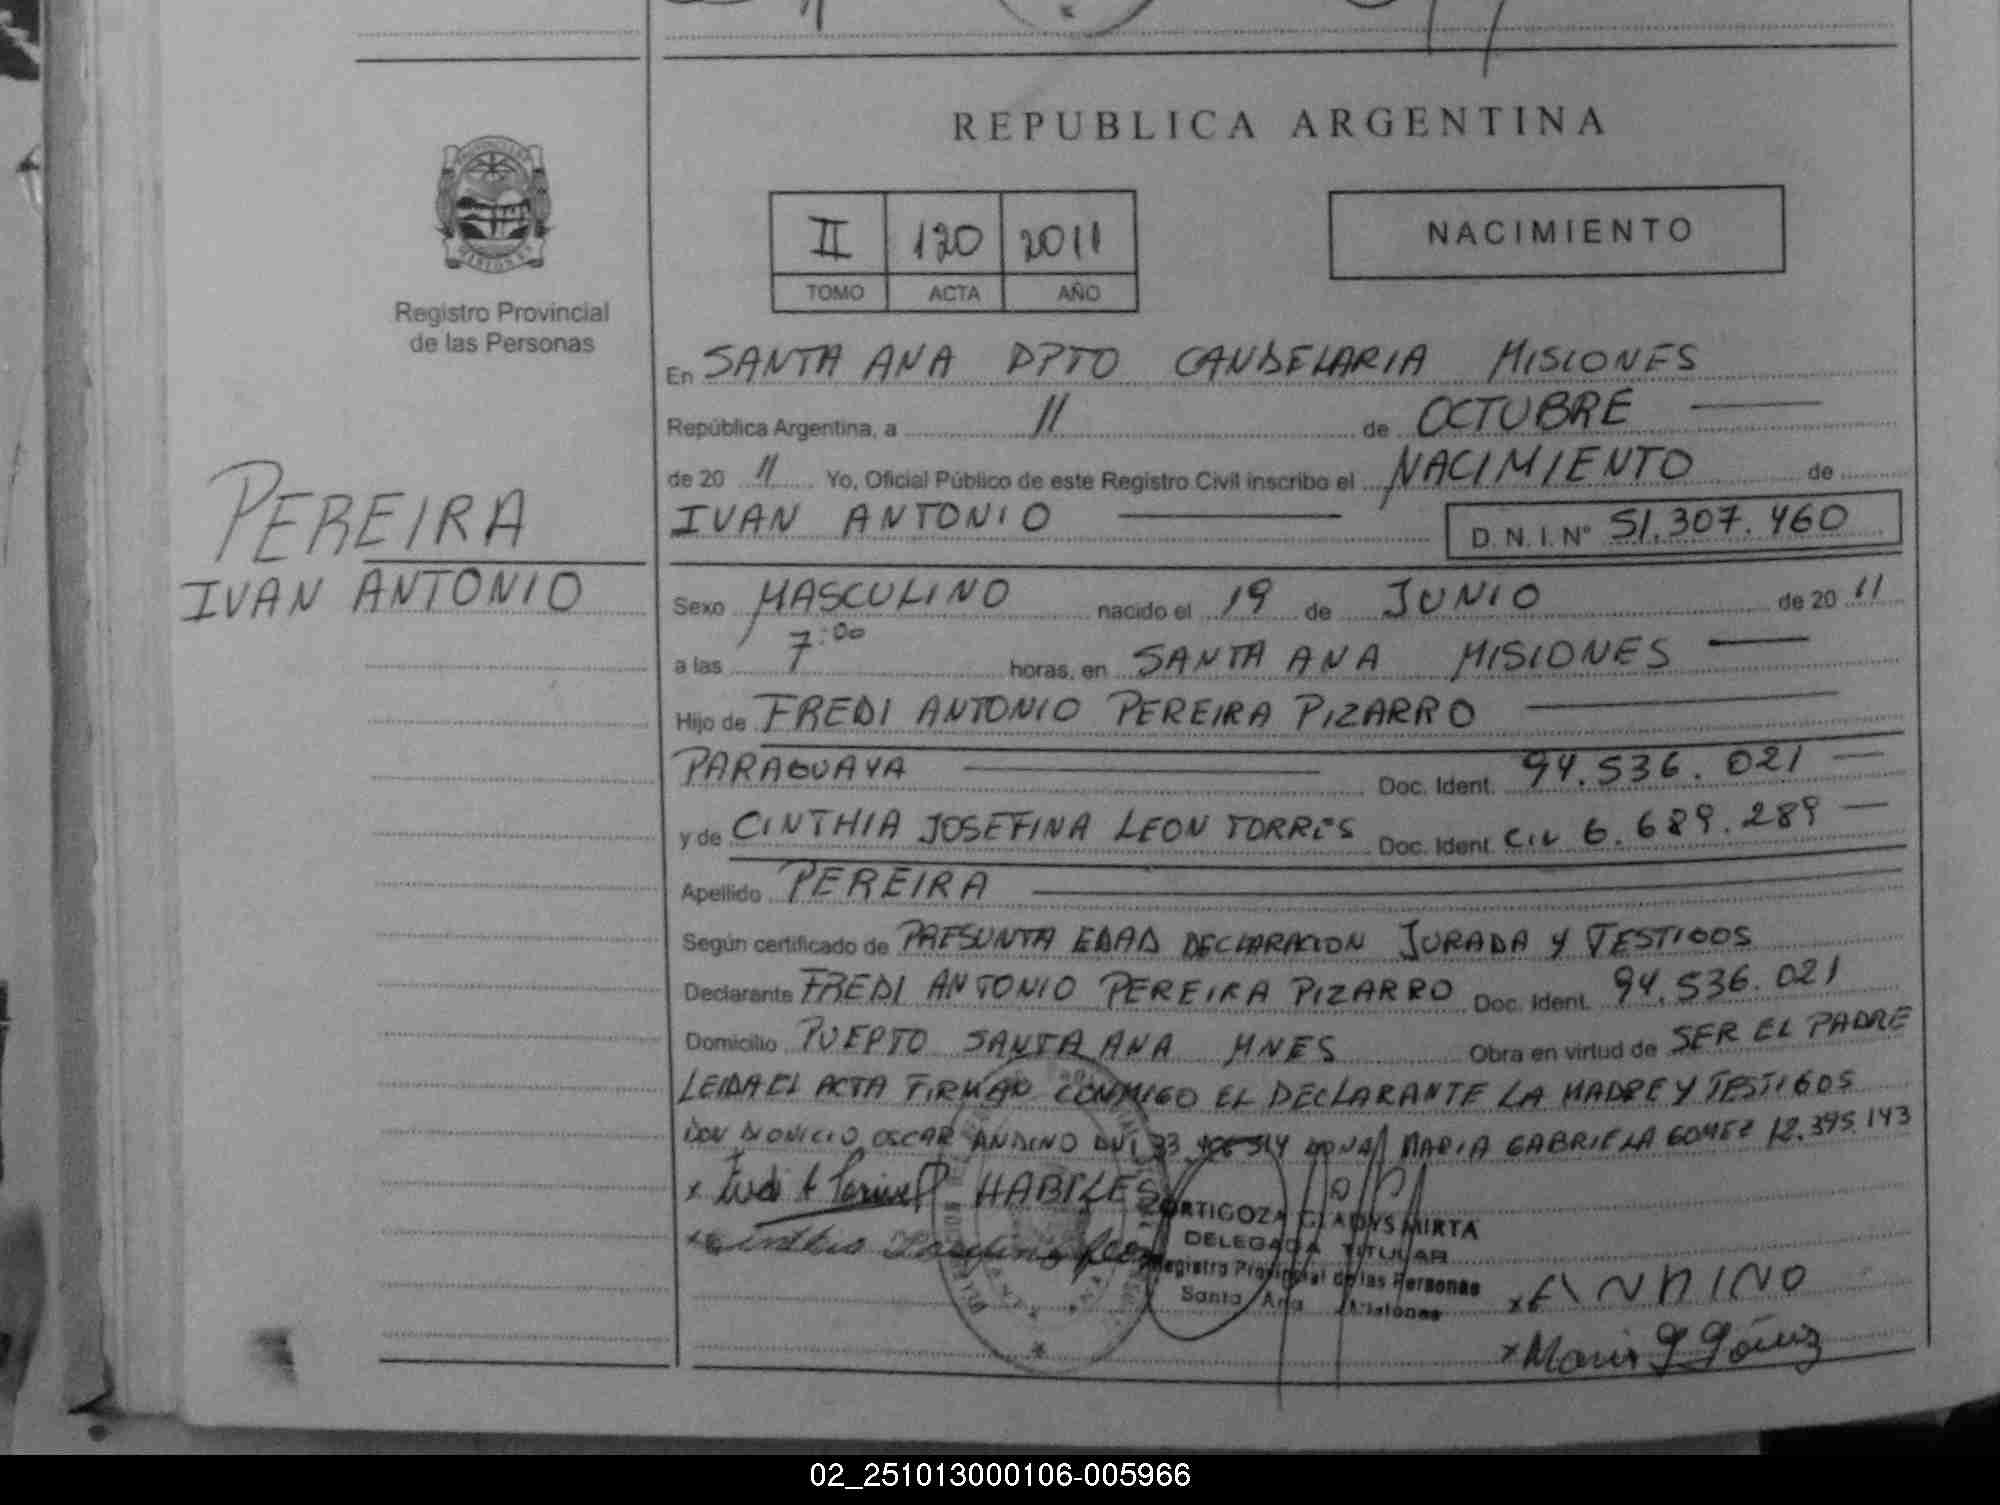 REPUBLICA ARGENTINA
II 120 2011
TOMO ACTA AÑO
NACIMIENTO
Registro Provincial
de las Personas
PEREIRA
IVAN ANTONIO
En SANTA ANA DPTO CANDELARIA MISIONES
República Argentina, a 11 de OCTUBRE
de 20 11 Yo, Oficial Público de este Registro Civil inscribo el NACIMIENTO de
IVAN ANTONIO D. N. I. Nº 51.307.460
Sexo MASCULINO nacido el 19 de JUNIO de 20 11
a las 7:00 horas, en SANTA ANA MISIONES
Hijo de FREDI ANTONIO PEREIRA PIZARRO
PARAGUAYA Doc. Ident. 94.536.021
y de CINTHIA JOSEFINA LEON TORRES Doc. Ident. 6.689.289
Apellido PEREIRA
Según certificado de PRESUNTA EDAD DECLARACION JURADA Y TESTIGOS
Declarante FREDI ANTONIO PEREIRA PIZARRO Doc. Ident. 94.536.021
Domicilio PUERTO SANTA ANA MNES Obra en virtud de SER EL PADRE
LEIDA EL ACTA FIRMAN CONMIGO EL DECLARANTE LA MADRE Y TESTIGOS
DON DIONICIO OSCAR ANDINO DNI 33 DONA MARIA GABRIELA GOMEZ 12.395.143
HABILES
ORTIGOZA GLADYS MIRTA
DELEGADA TITULAR
Registro Provincial de las Personas
Santa Ana Misiones
x ANDINO
x Maria G Gómez
02_251013000106-005966